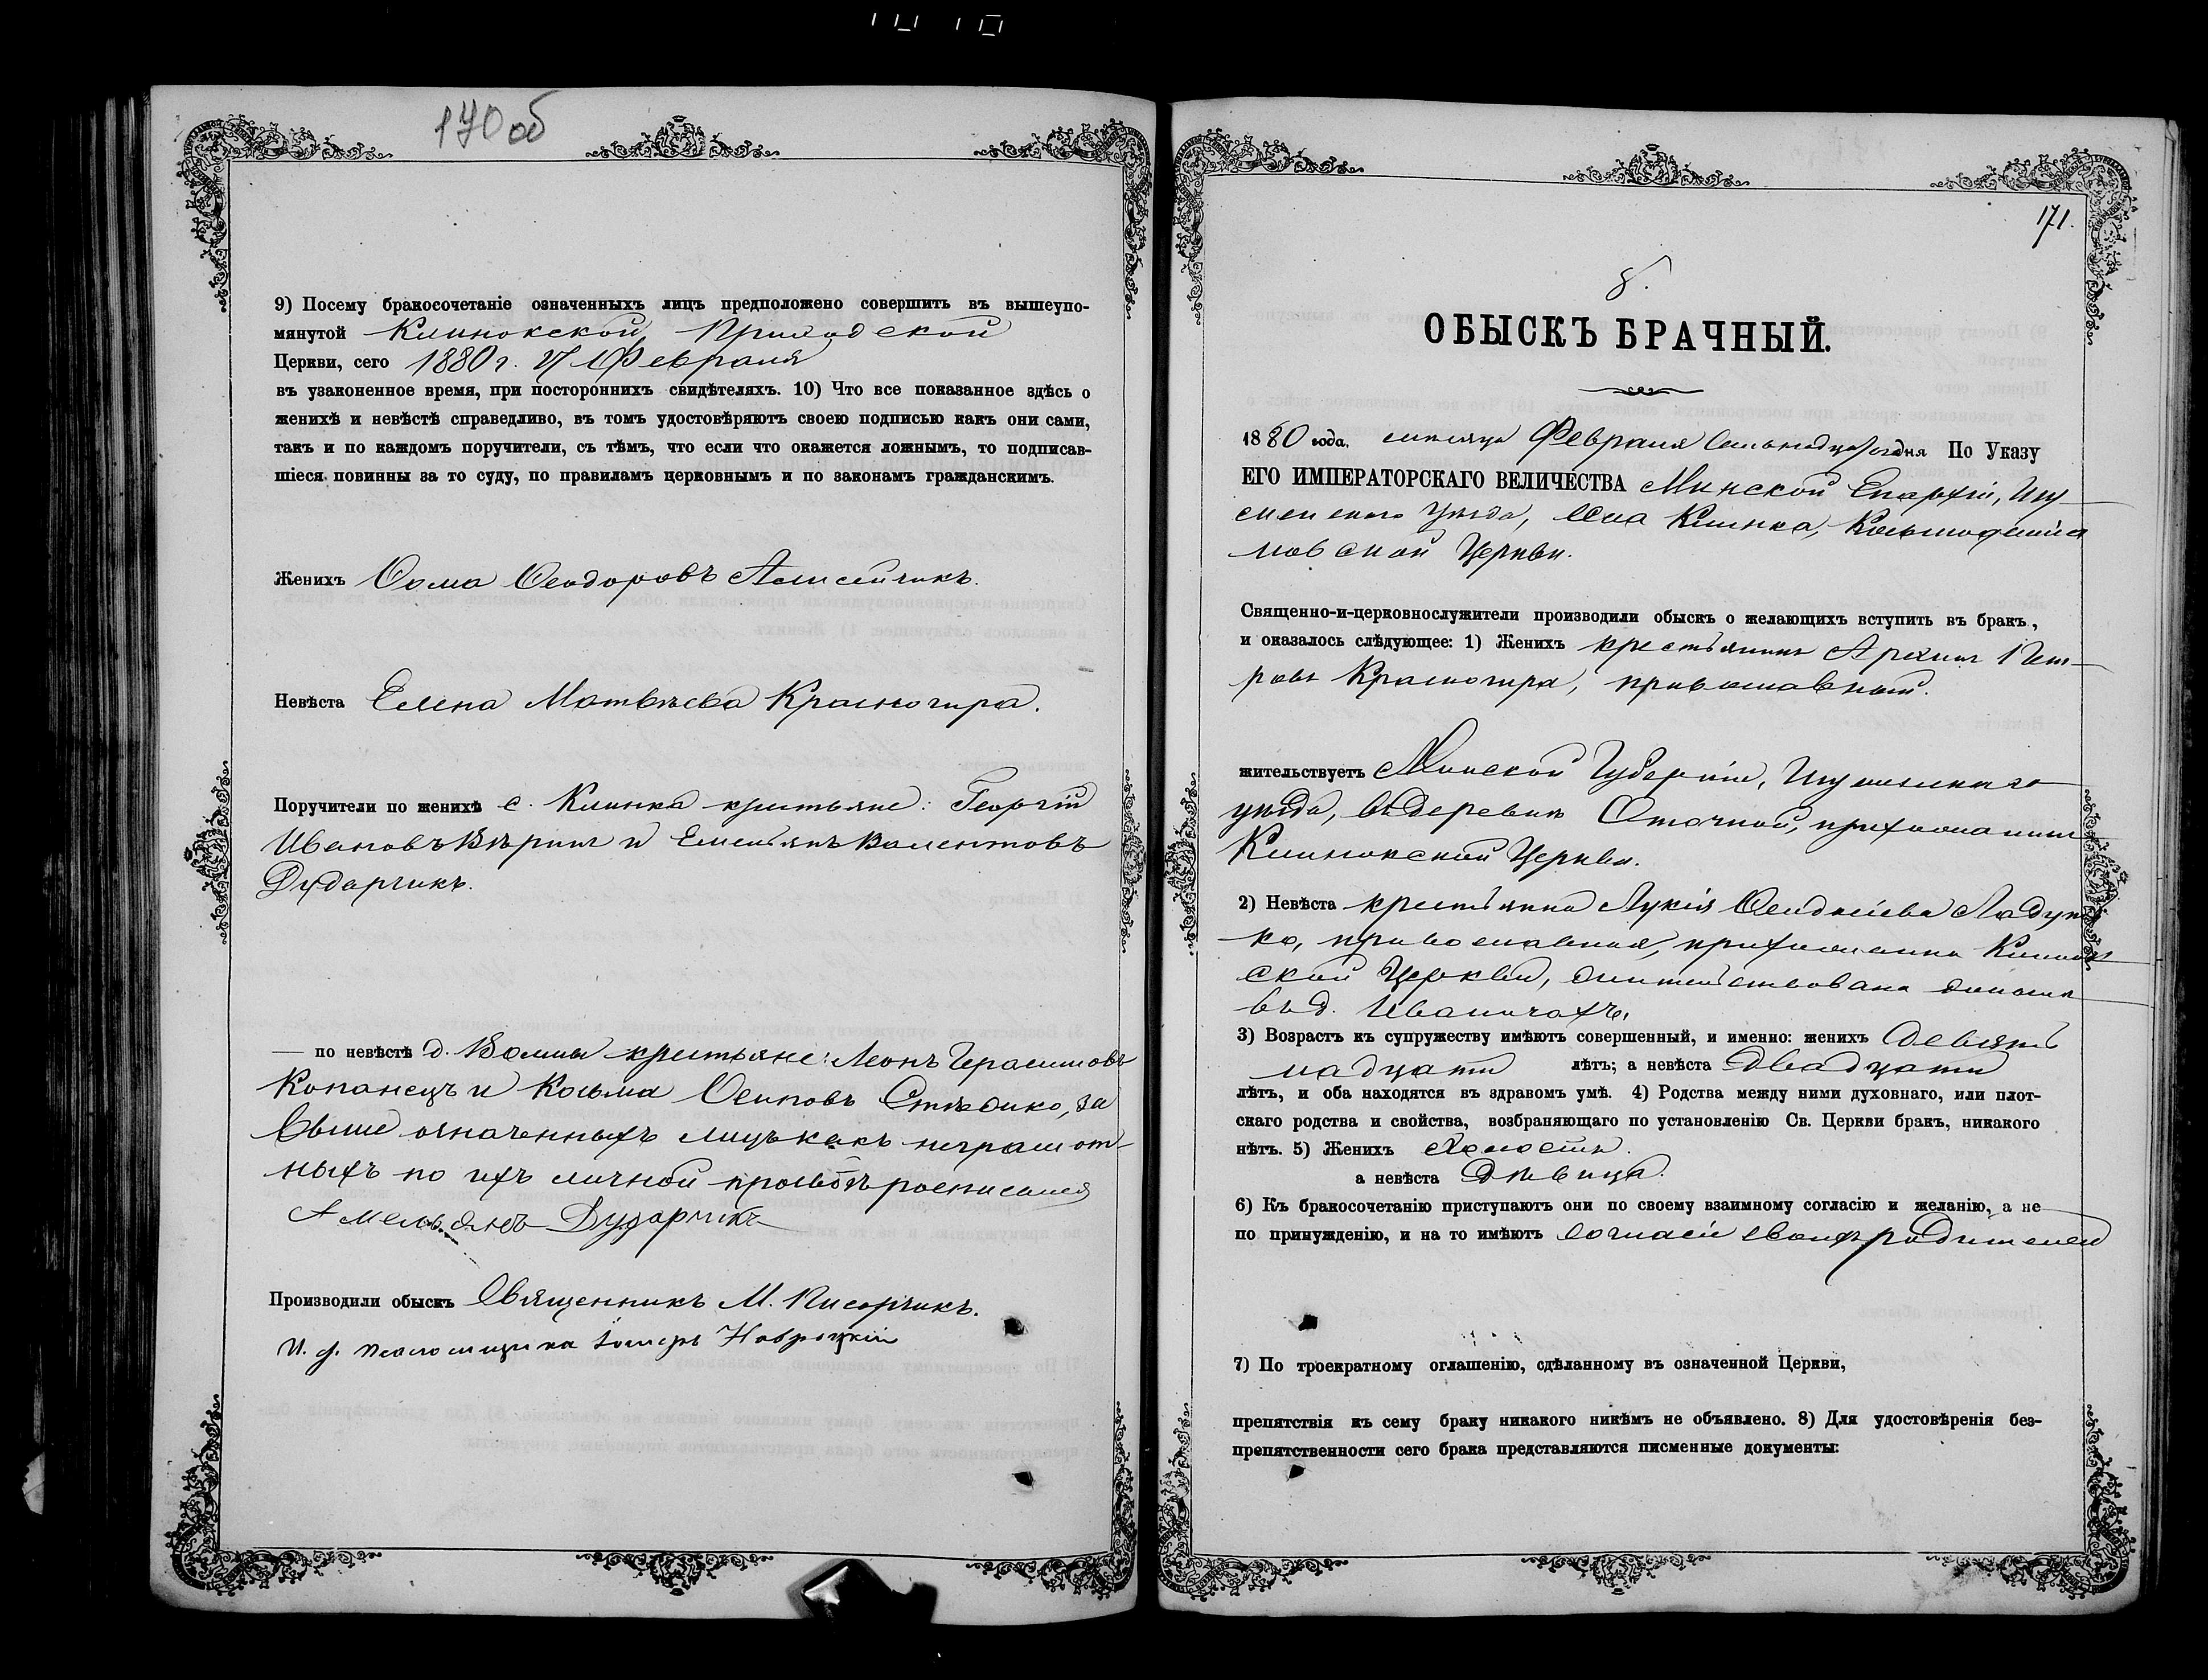 170 об
9) Посему бракосочетаніе означенныхъ лицъ предположено совершить въ вышеупо-
мянутой Клинокской Приходской
Церкви, сего 1880 г. 17 Февраля
въ узаконенное время, при постороннихъ свидѣтеляхъ. 10) Что все показанное здѣсь о
женихѣ и невѣстѣ справедливо, въ томъ удостовѣряютъ своею подписью какъ они сами,
такъ и по каждомъ поручители, съ тѣмъ, что если что окажется ложнымъ, то подписав-
шіеся повинны за то суду, по правиламъ церковнымъ и по законамъ гражданскимъ.
Женихъ Ѳома Ѳеодоровъ Алисейчикъ.
Невѣста Елена Матвѣева Красногира.
Поручители по женихѣ с. Клинка крестьяне: Георгій
Ивановъ и Емельянъ Валентовъ
Дударчикъ.
— по невѣстѣ д. Волмы крестьяне: Леонъ Герасимовъ
Копанецъ и Козьма Осиповъ за
выше означенныхъ лицъ какъ неграмот-
ныхъ по ихъ личной просьбѣ росписался
Амельянъ Дударчикъ
Производили обыскъ Священникъ М. Писарчикъ.
И. д. псаломщика Навроцкій
171.
8.
ОБЫСКЪ БРАЧНЫЙ.
1880 года, мѣсяца Февраля семьнадцатого дня По Указу
ЕГО ИМПЕРАТОРСКАГО ВЕЛИЧЕСТВА Минской Епархіи, Игу-
менскаго уѣзда, села Клинка, Козьмодемья
новской Церкви.
Священно-и-церковнослужители производили обыскъ о желающихъ вступить въ бракъ,
и оказалось слѣдующее: 1) Женихъ крестьянинъ Архипъ Пет-
ровъ Красногира, православный.
жительствуетъ Минской Губерніи, Игуменскаго
уѣзда, въ деревнѣ Оточной, прихожанинъ
Клинокской Церкви.
2) Невѣста крестьянка Лукія Ладуть
ко, православная, прихожанка Клинок
ской Церкви, жительствовала
въ д. Иваничахъ,
3) Возрастъ къ супружеству имѣютъ совершенный, и именно: женихъ девят
надцати лѣтъ; а невѣста двадцати
лѣтъ, и оба находятся въ здравомъ умѣ. 4) Родства между ними духовнаго, или плот-
скаго родства и свойства, возбраняющаго по установленію Св. Церкви бракъ, никакого
нѣтъ. 5) Женихъ холостъ.
а невѣста дѣвица.
6) Къ бракосочетанію приступаютъ они по своему взаимному согласію и желанію, а не
по принужденію, и на то имѣютъ согласіе своихъ родителей
7) По троекратному оглашенію, сдѣланному въ означенной Церкви,
препятствія къ сему браку никакого никѣмъ не объявлено. 8) Для удостовѣренія без-
препятственности сего брака представляются писменные документы: